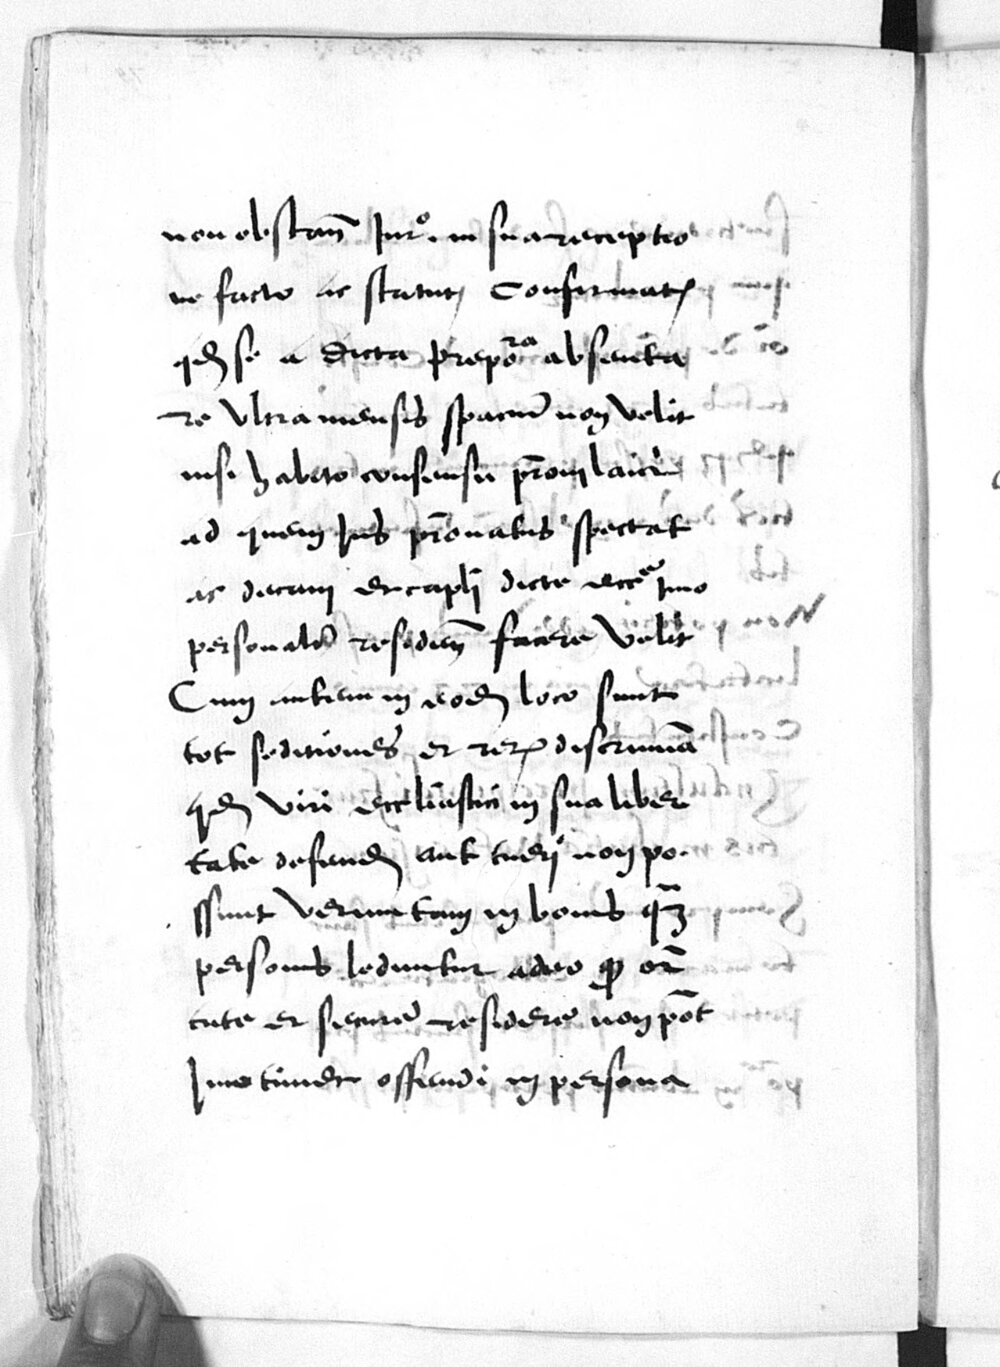 non obstan̄ Jurᵒ in sua receptio
ne facto ac statut Confirmat
qd se a dicta prepoʳᵃ absenta
re Ultra mensis spaciū non Velit
nisi habito consensu pr̄oni laici
ad quem Jus pr̄onatus spectat
ac decani et capli dicte ecce ymo
personalr̄ residen̄ facere Velit
Cum autem in eod loco sunt
tot seditiones et rer discrimina
qd Viri eccliastici in sua liber
tate defend aut tueri non po
ssunt Verumtam in bonis qm̄
personis leduntur adeo ꝙ or̄
tute et secure residere non pōt
ymo timet offendi in persona